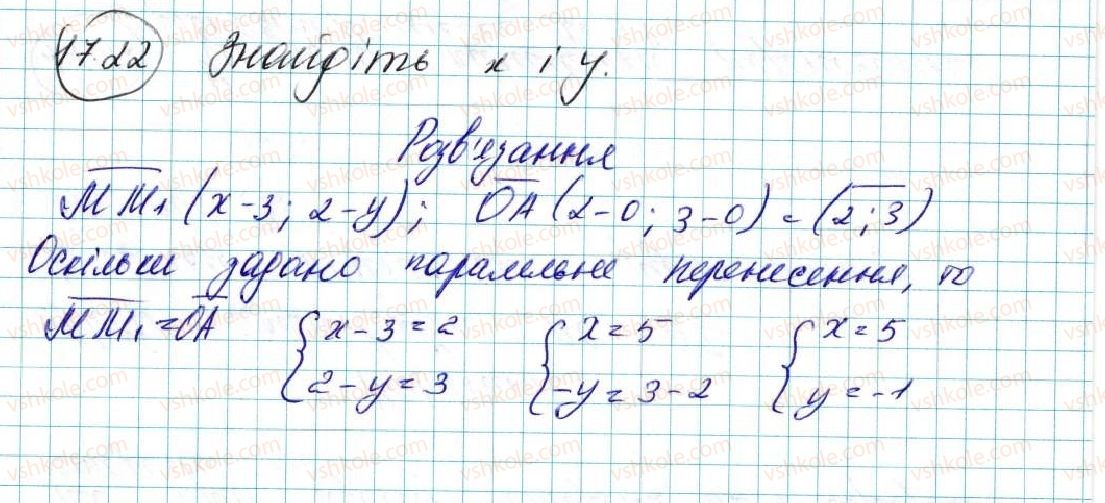 17.22 Знайдіть x і y.
Розв'язання
MM₁ (x-3; 2-y); OA (2-0; 3-0) = (2; 3)
Оскільки задано паралельне перенесення, то
MM₁ = OA { x-3=2 { x=5 { x=5
2-y=3 -y=3-2 y=-1
vshkole.com